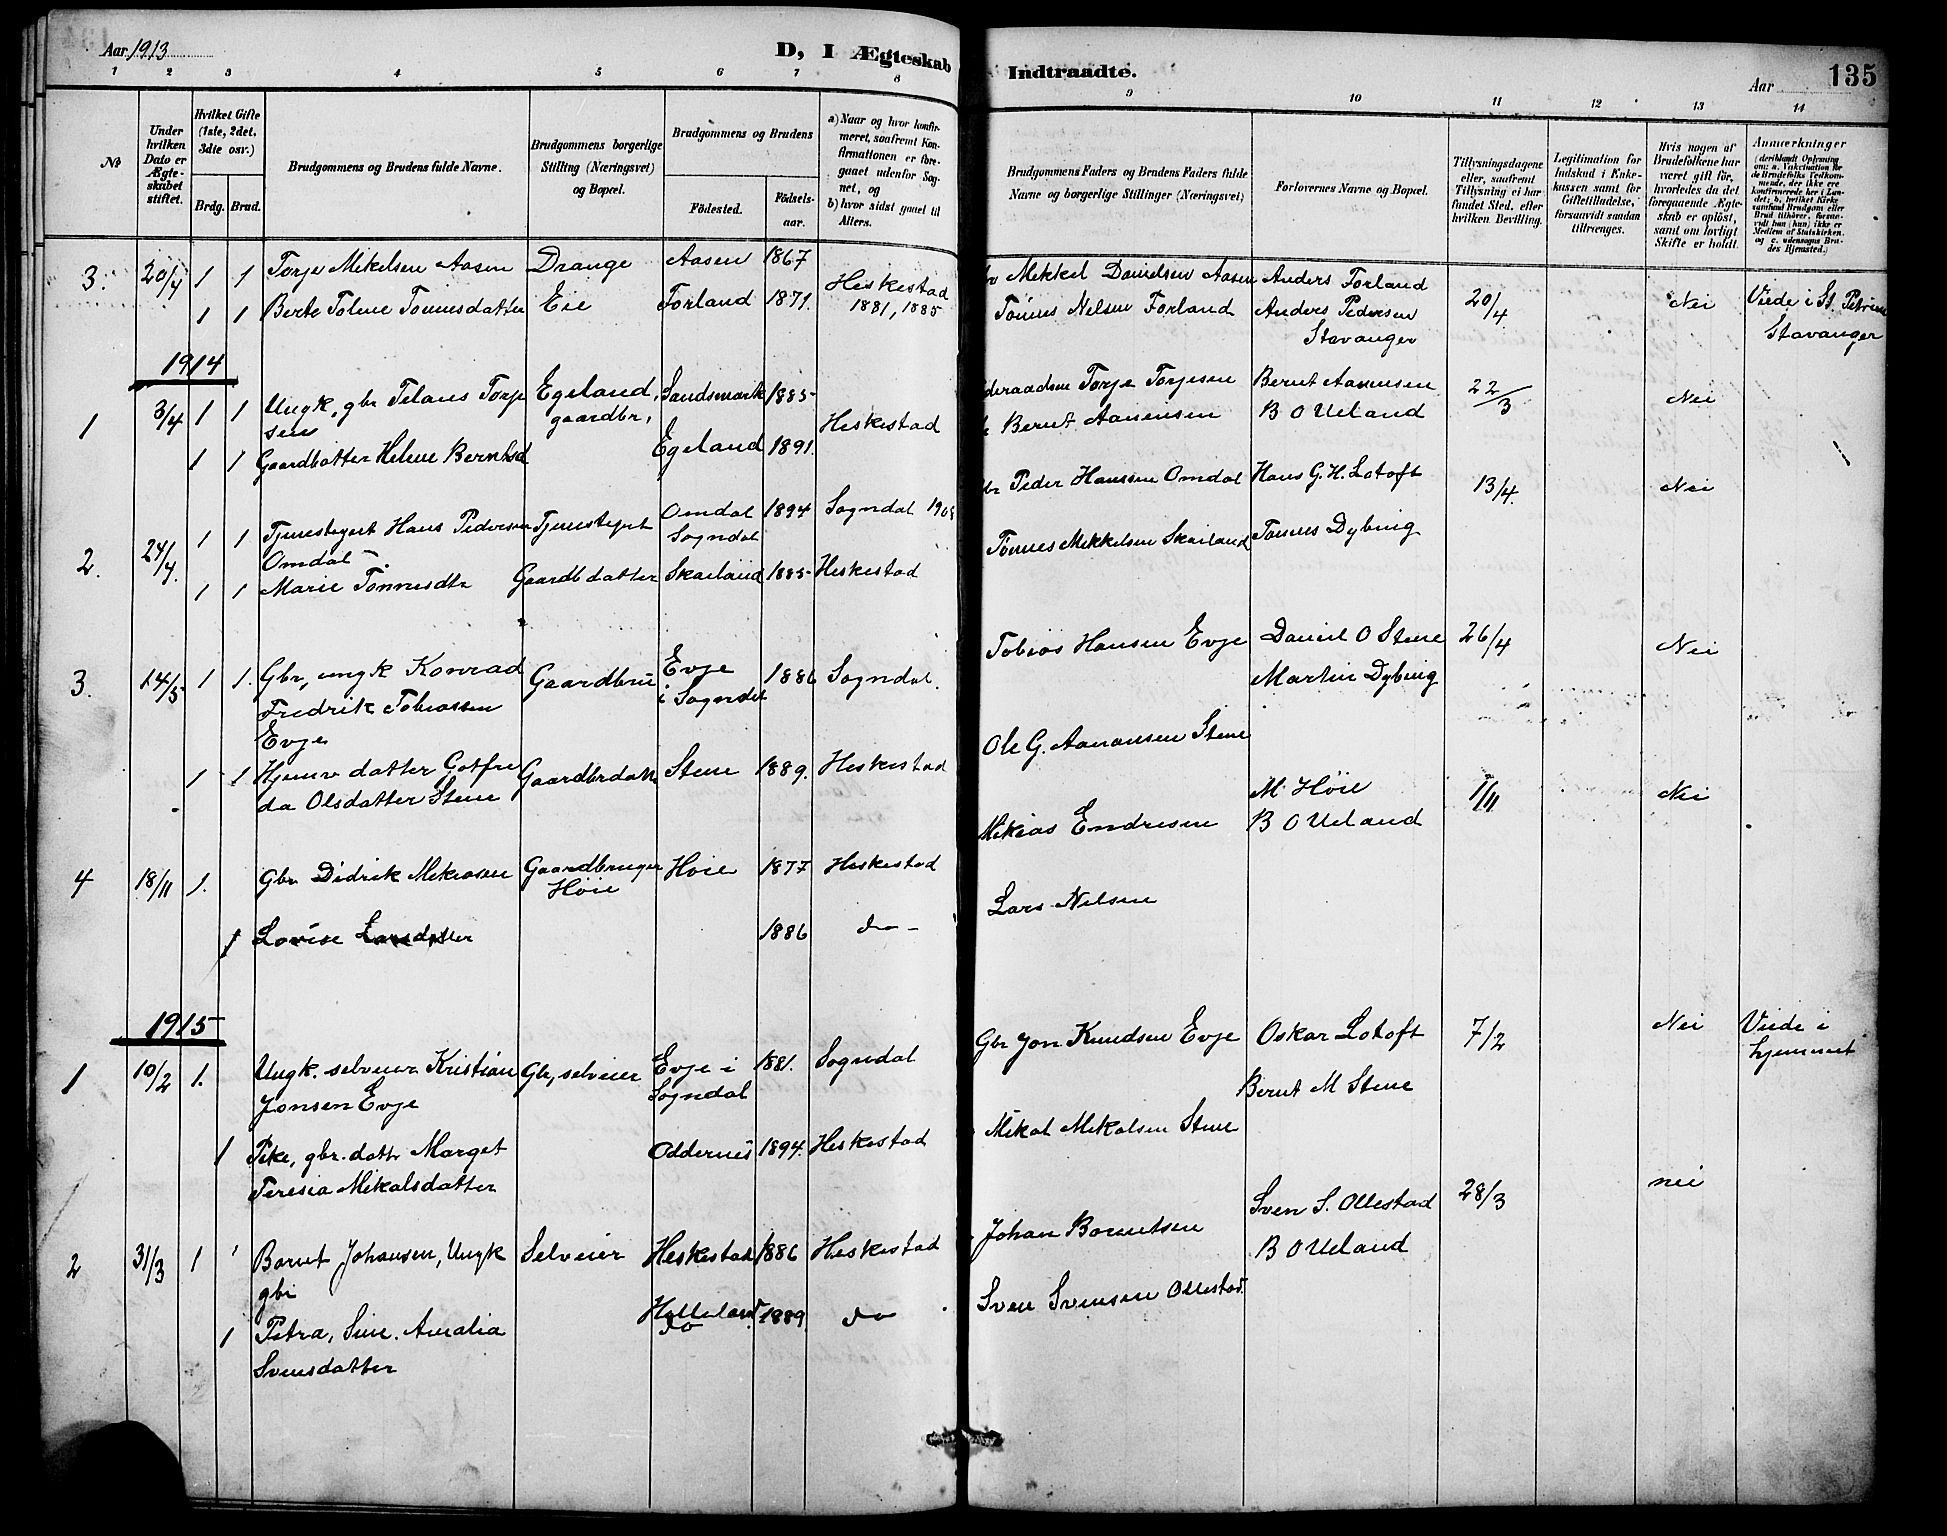 Aar 1913
D, I Ægteskab Indtraadte.
Aar
135
1 2 3 4 5 6 7 8 9 10 11 12 13 14
No
Under hvilken Dato er Ægteskabet stiftet.
Hvilket Gifte (1ste, 2det, 3die osv.)
Brdg. Brud.
Brudgommens og Brudens fulde Navne.
Brudgommens borgerlige Stilling (Næringsvei) og Bopæl.
Brudgommens og Brudens
Födested.
Födsels-aar.
a) Naar og hvor konfirmeret, saafremt Konfirmationen er foregaaet udenfor Sognet, og
b) hvor sidst gaaet til Alters.
Brudgommens Faders og Brudens Faders fulde Navne og borgerlige Stillinger (Næringsvei)
Forlovernes Navne og Bopæl.
Tillysningsdagene eller, saafremt Tillysning ei har fundet Sted, efter hvilken Bevilling.
Legitimation for Indskud i Enkekassen samt for Giftetilladelse, forsaavidt saadan tiltrænges.
Hvis nogen af Brudefolkene har været gift för, hvorledes da det foregaaende Ægteskab er oplöst, samt om lovligt Skifte er holdt.
Anmærkninger
3. 20/4 1 1 Torje Mikelsen Aasen Drange Aasen 1867 Heskestad
Mekkel Danielsen Aasen Anders Forland 20/4 Nei Viede i St. Petri
1 1 Berte Toline Tonnesdatter Eie Forland 1871. 1881, 1885
Tönnes Nelsen Forland Anders Pedersen Stavanger
Stavanger
1914
1 3/4 1 1 Ungk, gbr Tilans Torje Egeland, Sandsmark 1885 Heskestad
sen gaardbr,
Torje Torjesen Bernt Aanensen 22/3 Nei
1 1 Gaardbatter Helene Berntsd Egeland 1891.
Bernt Aanensen B O Ueland
2. 24/4. 1 1 Tjenestegut Hans Pedersen Tjenestegut Omdal 1894 Sogndal
Omdal Sogndal
Peder Hanssen Omdal Hans G. H. Lotoft 13/4. Nei
1 1 Marie Tönnesdtr Gaardbdatter Skailand 1885 Heskestad
Tönnes Mekkelsen Skailand Tönnes Dybing
3. 14/5 1 1. Gbr, ungk Konrad Gaardbru Evje 1886 Sogndal.
Fredrik Tobiassen i Sogndal
Evje
Tobias Hansen Evje Daniel O Stene 26/4 Nei
Martin Dybing
1 1 Hjemv datter Gotfre Gaardbrdatt Stene 1889. Heskestad
da Olsdatter Stene
Ole G. Aanansen Stene
4 18/11 1. Gbr Didrik Mekiasen Gaardbruger Höie 1877 Heskestad
Höie
Mekias Endresen M. Höie 1/11 Nei
B O Ueland
1 Lovise Larsdatter 1886 do
Lars Nelsen
1915
1 10/2 1. Ungk. selveier Kristian Gbr, selveier Evje i 1881. Sogndal
Jonsen Evje Sogndal
Gbr Jon Knudsen Evje Oskar Lotoft 7/2 Nei Viede i
Bernt M Stene hjemmet
1 Pike, gbr. datr Marget Oddernes 1894. Heskestad
Teresia Mikalsdatter
Mikal Mekalsen Stene
2 31/3 1 Bernt Johansen, Ungk Selveier Heskestad 1886 Heskestad
gbr
Johan Berntsen Sven S. Ollestad 28/3 nei
B O Ueland
1 Petra, Sine. Amalia Helleland 1889. do
Svensdatter do
Sven Svensen Ollestad